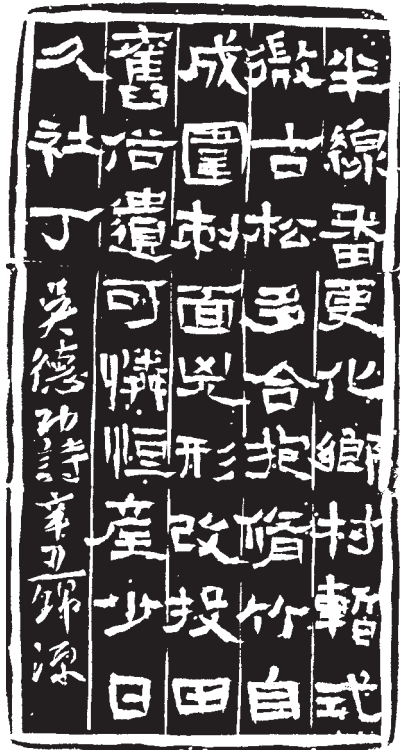 半線番更化鄉村暫式
微古松多合抱脩竹自
成圍刺面兇形改投田
舊俗遺可憐恒產少日
久社丁
吳德功詩辛丑錦源